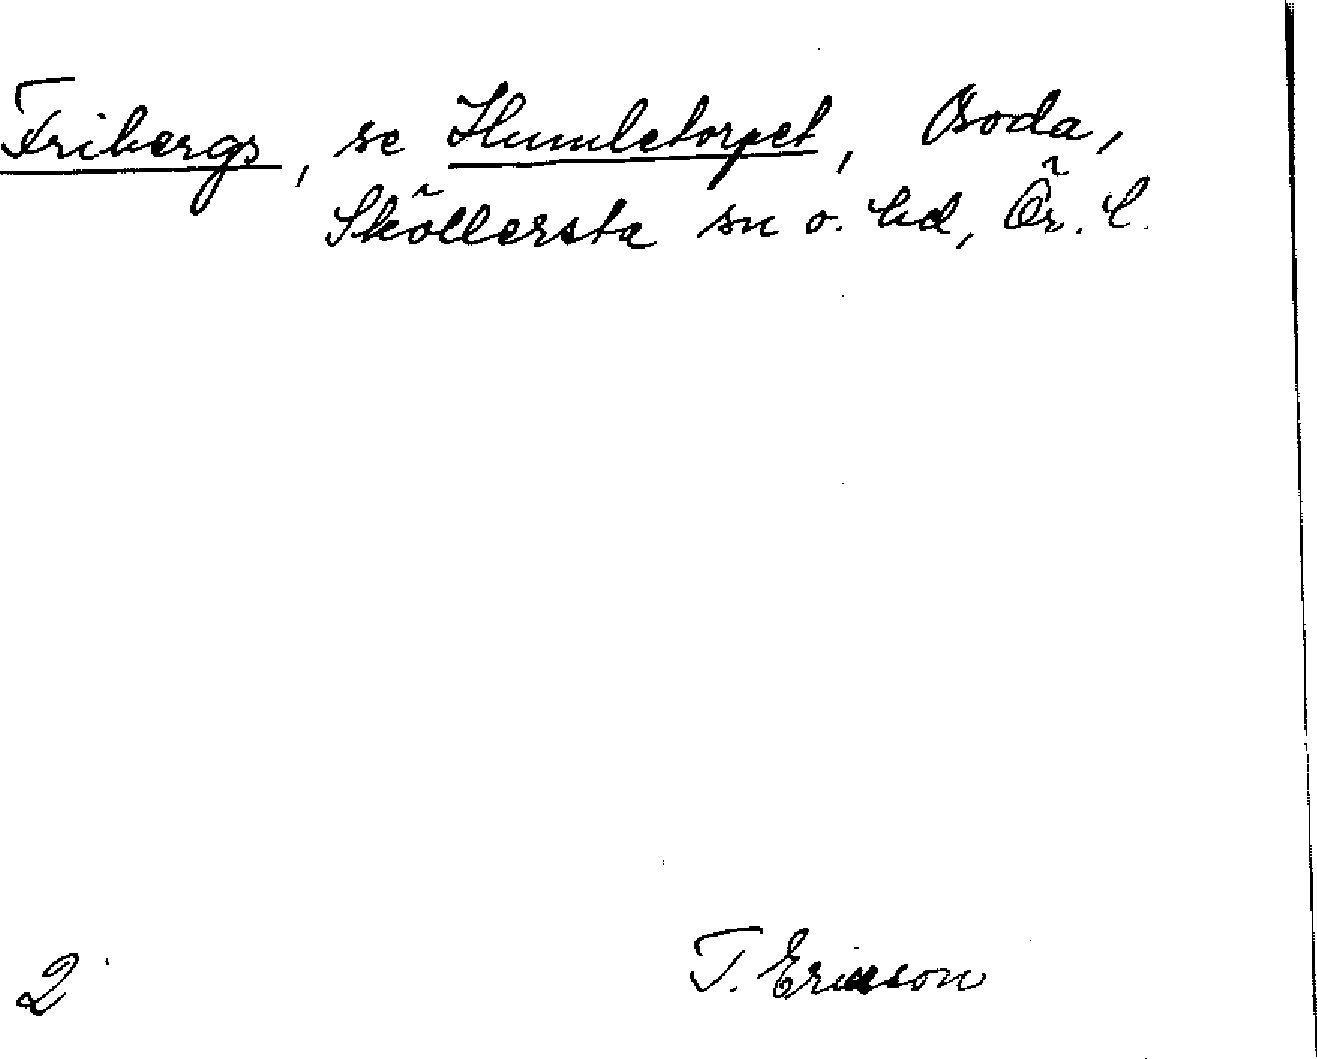 Fribergs, se Humletorpet, Boda,
Sköllersta sn o. hd, Ör. l.
T. Ericson
2